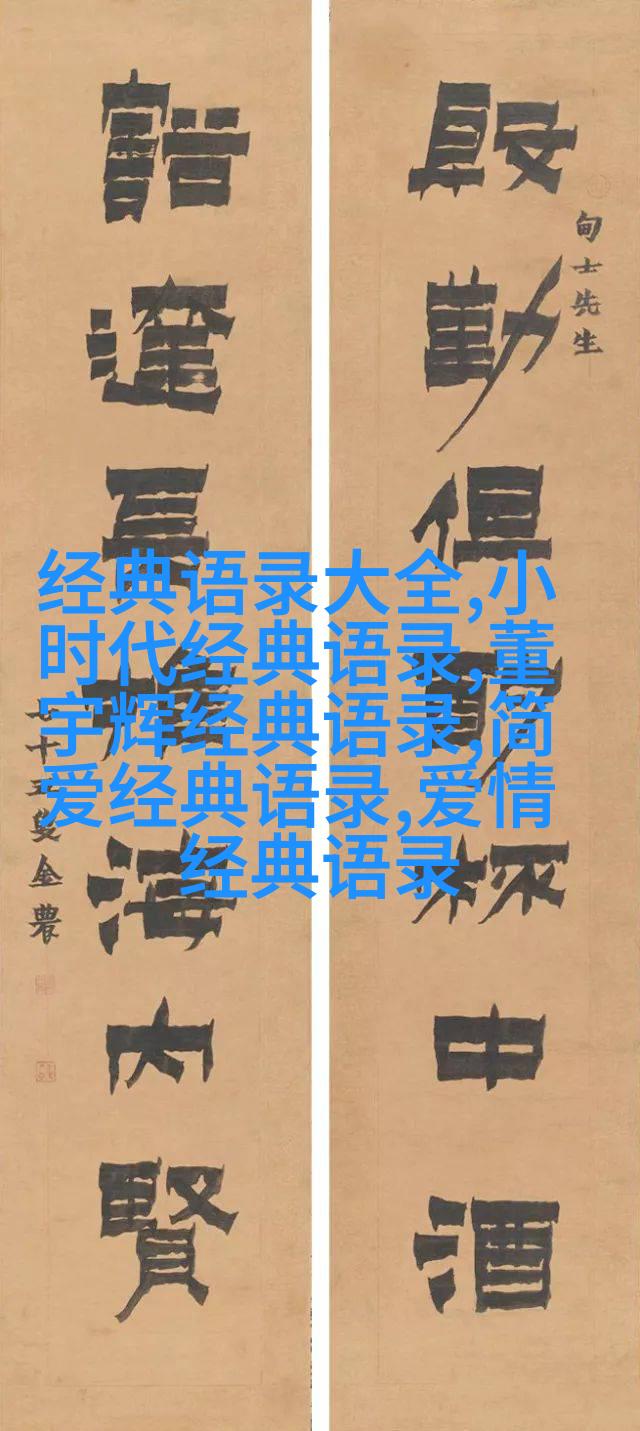 殷勤但杯中酒
甸士先生
豁達長海内賢
七十五叟金農
经典语录大全,小
时代经典语录,董
宇辉经典语录,简
爱经典语录,爱情
经典语录